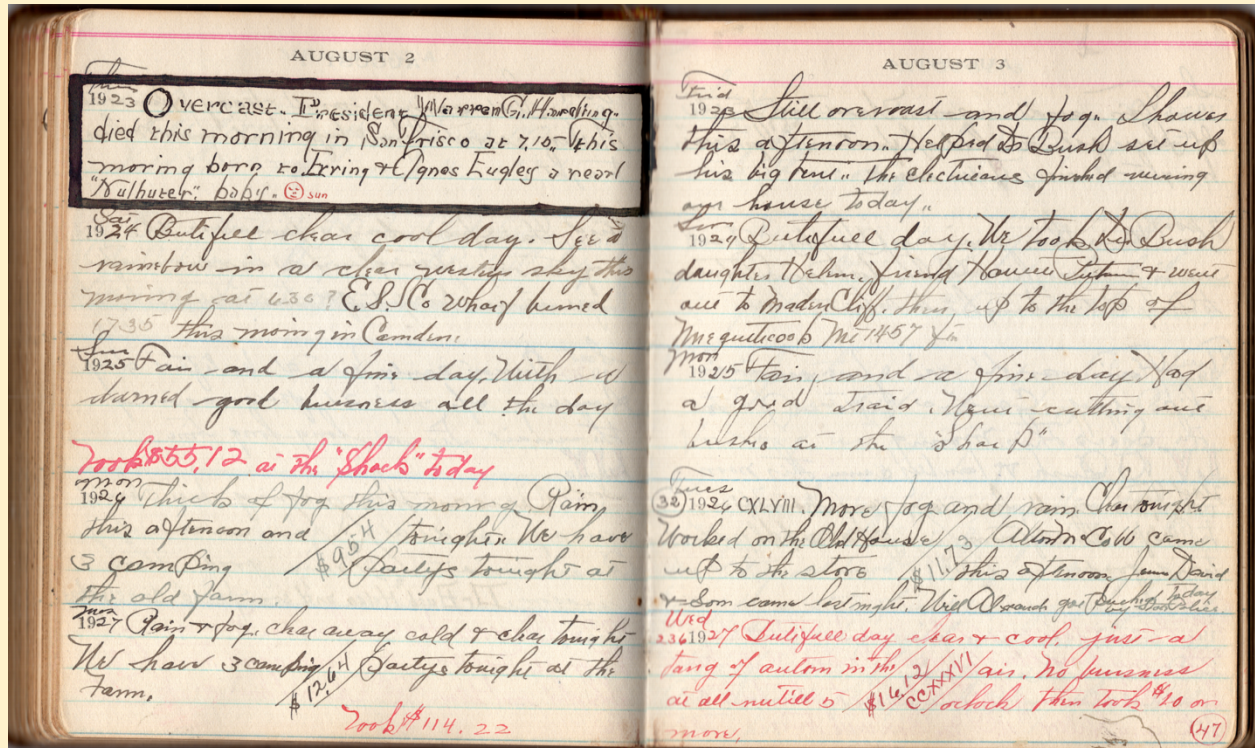 AUGUST 2
Thur
1923 Overcast. President "Warren G. Harding"
died this morning in San Frisco at 7.10. This
moring born to Erving & Agnes Eugley a neart
baby. sun
Sat
1924 Butifull clear cool day. See a
rainbow in a clear sky this
moring at 6.30? E.S.S.Co wharf burned
1735 this moing in Camden.
Sun
1925 Fair and a fine day. With a
darned good busness all the day
Took $55.12 at the "Shack" today
Mon
1926 Thick of fog this morng Rain
this aftenoon and $9.54 tonight. We have
3 camping partys tonight at
the old farm.
Tues
1927 Rain & fog. clear away cold & clear tonight
We have 3 camping $12.64 partys tonight at the
Farm.
Took $114.22
AUGUST 3
Frid
1923 Still overcast and fog. Shower
this aftenoon. Helped Dr Bush set up
his big tent. The electricians finshed wireing
our house today.
Sun
1924 Butifull day. We took Dr Bush
daughter friend & went
out to Maden Cliff. then, up to the top of
Megunticook Mt 1457 ft
Mon
1925 Fair, and a fine day Had
a good traid. Went cutting out
bushes at the
Tues
32 1926 CXLVIII. More fog and rain. Clear tonight
Worked on the Old House $11.73 Cobb came
up to the store this aftenoon David
& Som came last night. Will got today
Wed
236 1927 Butifull day clear & cool, just a
tang of autom in the $16.12 CCXXXVI air. No busness
at all untill 5 oclock then took $10 or
more.
47